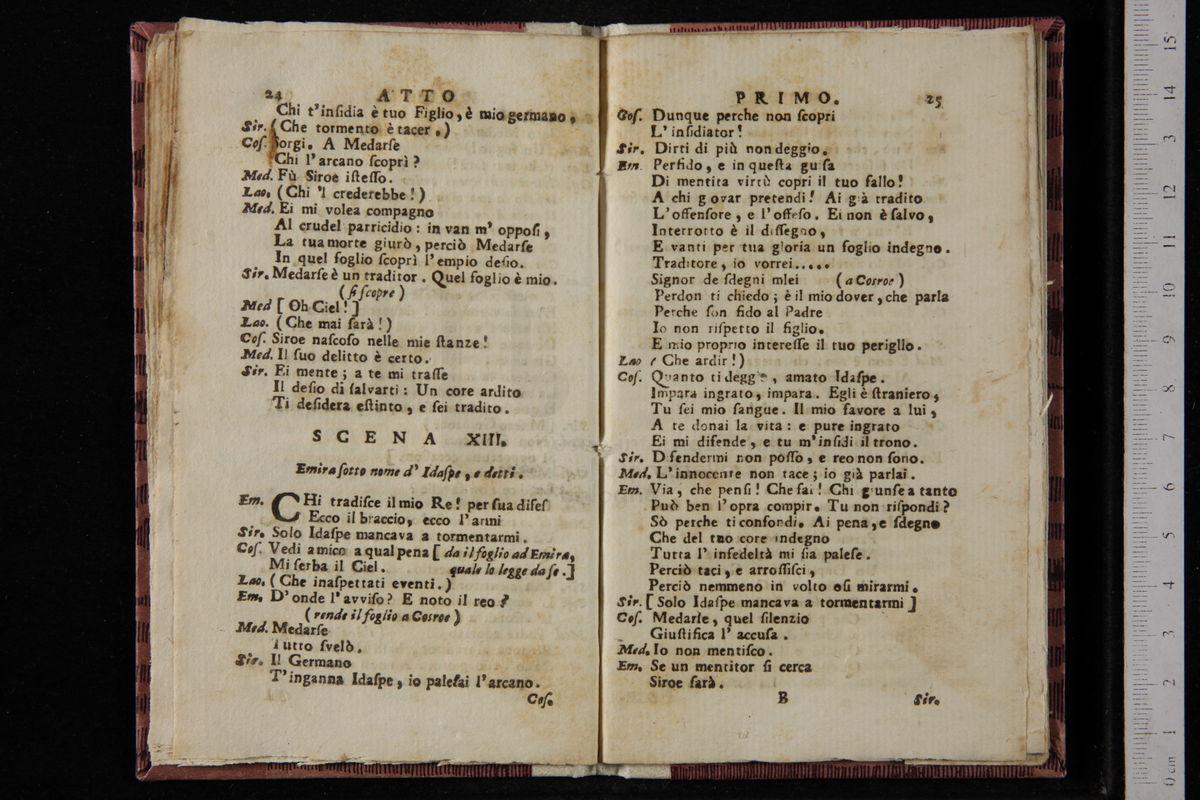 24 ATTO
Chi t'inſidia è tuo Figlio, è mio germano.
Sir. (Che tormento è tacer.)
Coſ. Sorgi. A Medarſe
Chi l'arcano ſcoprì?
Med. Fù Siroe iſteſſo.
Lao. (Chi 'l crederebbe!)
Med. Ei mi volea compagno
Al crudel parricidio: in van m' oppoſi,
La tua morte giurò, perciò Medarſe
In quel foglio ſcoprì l'empio deſio.
Sir. Medarſe è un traditor. Quel foglio è mio.
(ſi ſcopre)
Med [Oh Ciel!]
Lao. (Che mai ſarà!)
Coſ. Siroe naſcoſo nelle mie ſtanze!
Med. Il ſuo delitto è certo.
Sir. Ei mente; a te mi traſſe
Il deſio di ſalvarti: Un core ardito
Ti deſidera eſtinto, e ſei tradito.
SCENA XIII.
Emira ſotto nome d' Idaſpe, e detti.
Em. CHi tradiſce il mio Re! per ſua difeſ
Ecco il braccio, ecco l'armi
Sir. Solo Idaſpe mancava a tormentarmi.
Coſ. Vedi amico a qual pena [da il foglio ad Emira,
Mi ſerba il Ciel. quale lo legge da ſe.]
Lao. (Che inaſpettati eventi.)
Em. D'onde l'avviſo? E noto il reo?
(rende il foglio a Cosroe)
Med. Medarſe
Tutto ſvelò.
Sir. Il Germano
T'inganna Idaſpe, io paleſai l'arcano.
Coſ.
PRIMO. 25
Coſ. Dunque perche non ſcopri
L'inſidiator!
Sir. Dirti di più non deggio.
Em. Perfido, e in queſta guiſa
Di mentita virtù copri il tuo fallo!
A chi giovar pretendi! Ai già tradito
L'offenſore, e l'offeſo. Ei non è ſalvo,
Interrotto è il diſſegno,
E vanti per tua gloria un foglio indegno.
Traditore, io vorrei.....
Signor de ſdegni miei (a Cosroe)
Perdon ti chiedo; è il mio dover, che parla
Perche ſon fido al Padre
Io non riſpetto il figlio.
E mio proprio intereſſe il tuo periglio.
Lao (Che ardir!)
Coſ. Quanto ti deggio, amato Idaſpe.
Impara ingrato, impara. Egli è ſtraniero,
Tu ſei mio ſangue. Il mio favore a lui,
A te donai la vita: e pure ingrato
Ei mi difende, e tu m'inſidi il trono.
Sir. Difendermi non poſſo, e reo non ſono.
Med. L'innocente non tace; io già parlai.
Em. Via, che penſi! Che fai! Chi giunſe a tanto
Può ben l'opra compir. Tu non riſpondi?
Sò perche ti confondi. Ai pena, e ſdegno
Che del tuo core indegno
Tutta l' infedeltà mi ſia paleſe.
Perciò taci, e arroſſiſci,
Perciò nemmeno in volto oſi mirarmi.
Sir. [Solo Idaſpe mancava a tormentarmi]
Coſ. Medarſe, quel ſilenzio
Giuſtifica l' accuſa.
Med. Io non mentiſco.
Em. Se un mentitor ſi cerca
Siroe ſarà.
B Sir.
15
14
13
12
11
10
9
8
7
6
5
4
3
2
1
0 cm